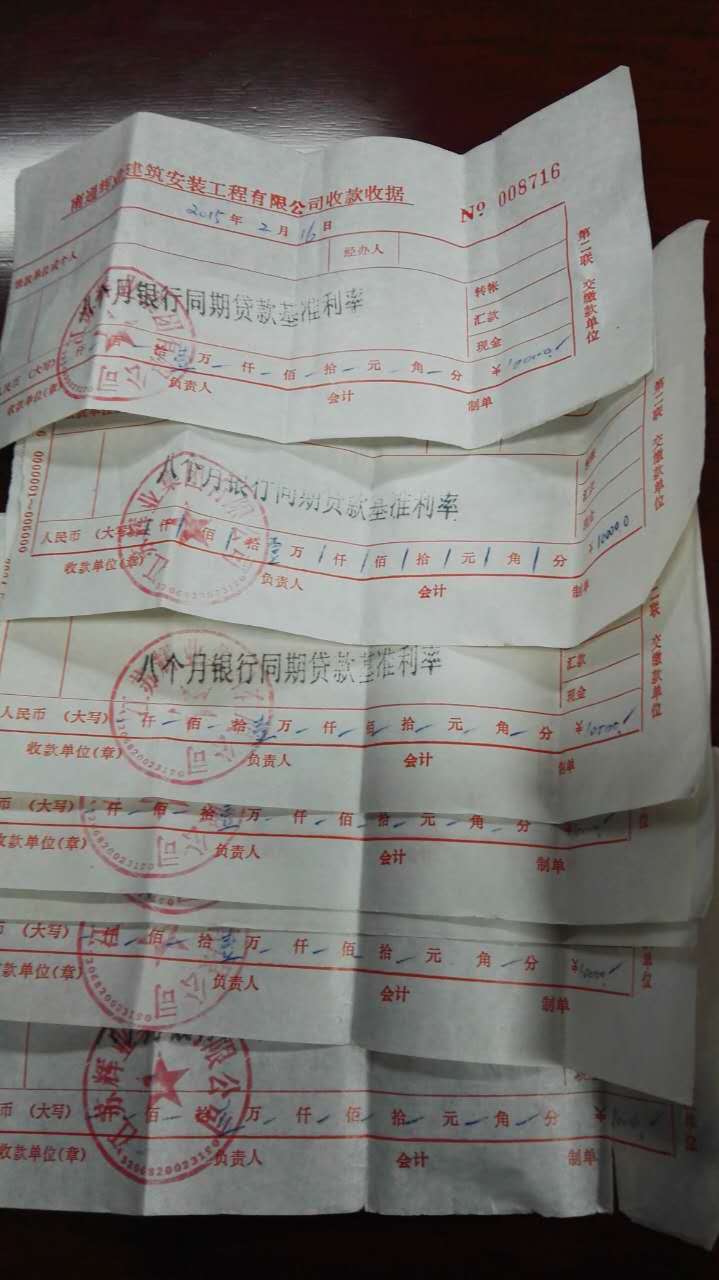 南通辉业建筑安装工程有限公司收款收据
№ 008716
2015年 2月 16日
缴款单位或个人
经办人
第二联 交缴款单位
转帐
汇款
现金
八个月银行同期贷款基准利率
人民币 (大写) 仟 佰 拾 壹 万 仟 佰 拾 元 角 分 ¥10000.
收款单位(章) 负责人 会计 制单
0000001~005000
八个月银行同期贷款基准利率
转帐
汇款
现金
第二联 交缴款单位
人民币 (大写) 仟 佰 拾 壹 万 仟 佰 拾 元 角 分 ¥10000
收款单位(章) 负责人 会计 制单
八个月银行同期贷款基准利率
汇款
现金
第二联 交缴款单位
人民币 (大写) 仟 佰 拾 壹 万 仟 佰 拾 元 角 分 ¥10000.
收款单位(章) 负责人 会计 制单
币 (大写) 仟 佰 拾 壹 万 仟 佰 拾 元 角 分
收款单位(章) 负责人 会计 制单
单位
币 (大写) 仟 佰 拾 壹 万 仟 佰 拾 元 角 分 ¥10000.
款单位(章) 负责人 会计 制单
单位
江苏辉业 有限公司
币 (大写) 仟 佰 拾 万 仟 佰 拾 元 角 分 ¥10000.
收款单位(章) 负责人 会计 制单
单位